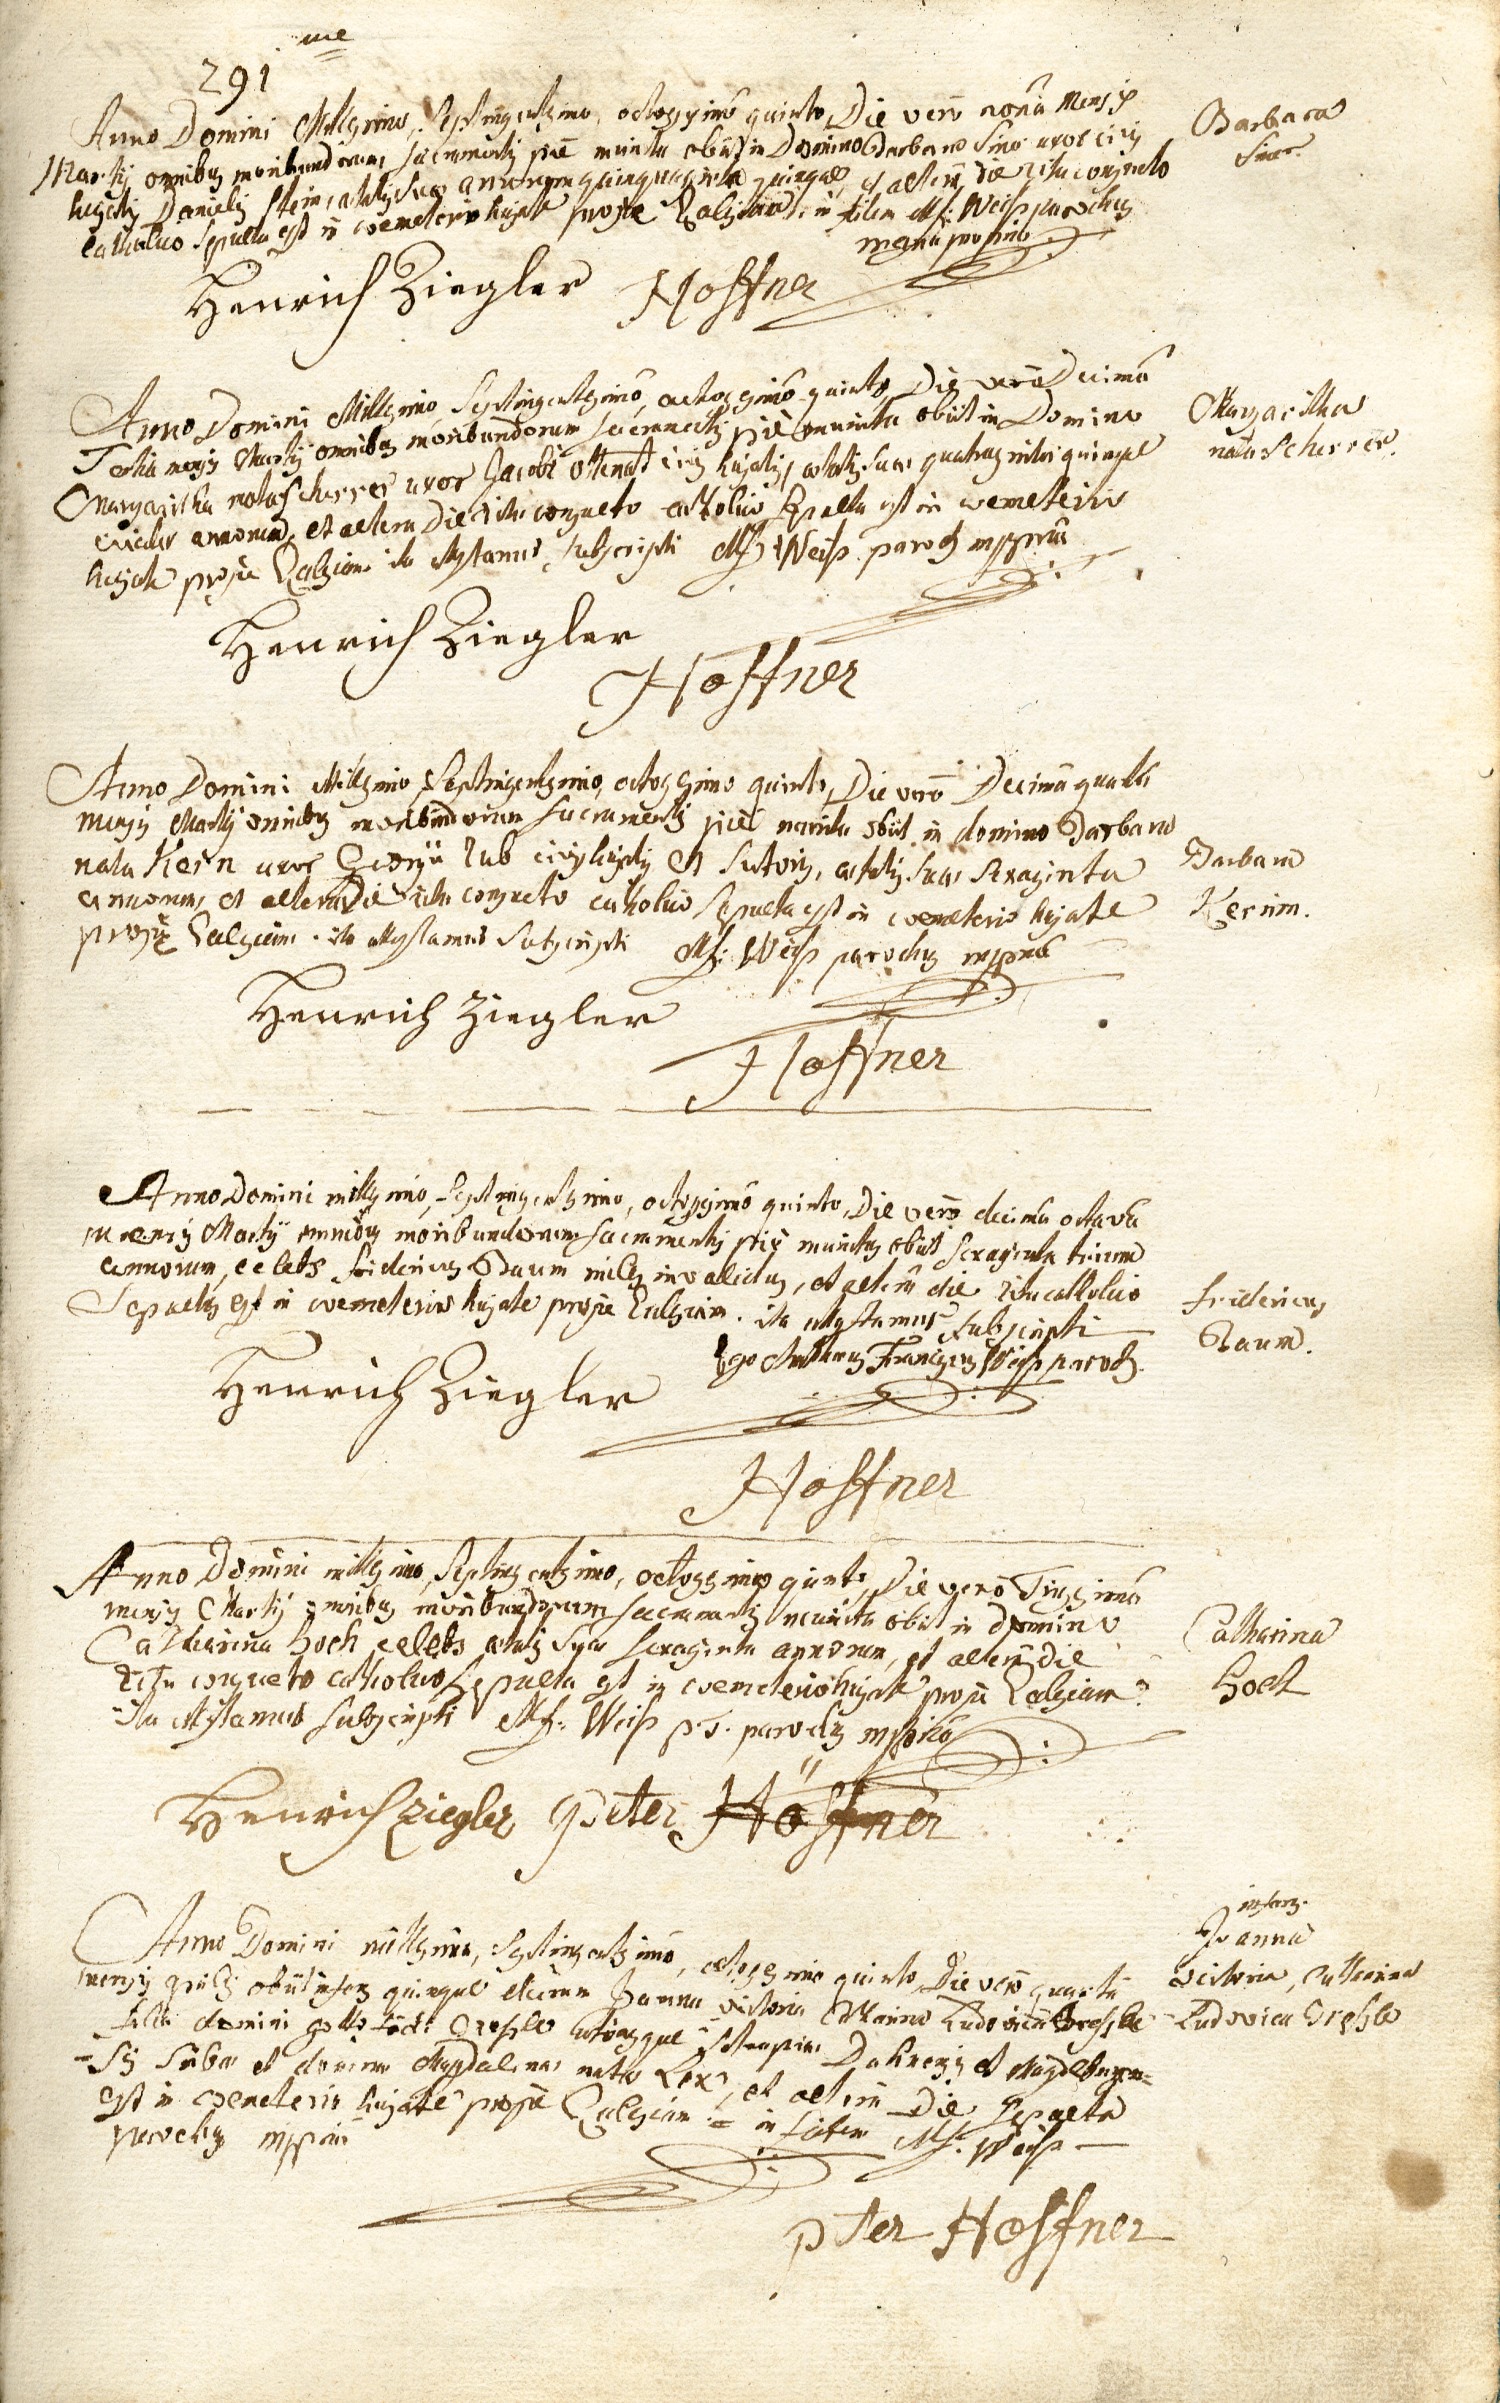 291 me
Anno Domini Millesimo, Septingentesimo, octogesimo quinto, Die vero nona Mensis
Martij omnibus moribundorum sacramentis pie munita obiit in Domino Barbara uxor civis
hujatis Danielis Stein, aetatis suae annorum quinquaginta quinque, et altera die ritu consueto
catholico Sepulta est in coemeterio hujate prope Ecclesiam. in fidem Mf: Weiss parochus
manu propria
Barbara
Henrich Ziegler Hoffner
Anno Domini Millesimo, Septingentesimo, octogesimo quinto, Die vero Decima
Tertia mensis Martij omnibus moribundorum Sacramentis pie munita obiit in Domino
Margaritha nata Scherrer uxor Jacobi civis hujatis, aetatis suae quadraginta quinque
circiter annorum, et altera Die ritu consueto catholico Sepulta est in coemeterio
hujate prope Ecclesiam ita attestamur subscripti Mf Weiss paroch mppria
Margaritha
nata Scherrer.
Henrich Ziegler
Hoffner
Anno Domini Millesimo Septingentesimo, octogesimo quinto, Die vero Decima quarta
mensis Martij omnibus moribundorum Sacramentis pie munita obiit in domino Barbara
nata Kern uxor Georgii civis hujatis et Sutoris, aetatis suae Sexaginta
annorum, et altera Die ritu consueto catholico Sepulta est in coemeterio hujate
prope Ecclesiam. ita attestamur Subscripti Mf: Weiss parochus mppria
Barbara
Kernin.
Henrich Ziegler
Hoffner
Anno Domini millesimo, Septingentesimo, octogesimo quinto, Die vero decima octava
mensis Martij omnibus moribundorum sacramentis pie munitus obiit sexaginta trium
annorum, celebs Fridericus Baum miles invalidus, et altera die ritu catholico
Sepultus est in coemeterio hujate prope Ecclesiam. ita attestamur subscripti
Ego Franciscus Weiss paroch.
Fridericus
Baum.
Henrich Ziegler
Hoffner
Anno Domini millesimo, Septingentesimo, octogesimo quinto, Die vero Trigesima
mensis Martij omnibus moribundorum sacramentis munita obiit in domino
Catharina Hoch celebs aetatis suae sexaginta annorum, et altera die
ritu consueto catholico Sepulta est in coemeterio hujate prope Ecclesiam
ita attestamur subscripti Mf: Weiss p.t. parochus mppria
Catharina
Hoch
Henrich Ziegler Peter Höffner
Anno Domini millesimo, Septingentesimo, octogesimo quinto, Die vero quarta
mensis obiit infans quinque dierum Joanna victoria Ludovica
filia domini
et Magdalena nata et altera Die Sepulta
est in coemeterio hujate prope Ecclesiam in fidem Mf. Weiss
parochus mppria
infans.
Joanna
victoria, Catharina
Ludovica
Peter Hoffner